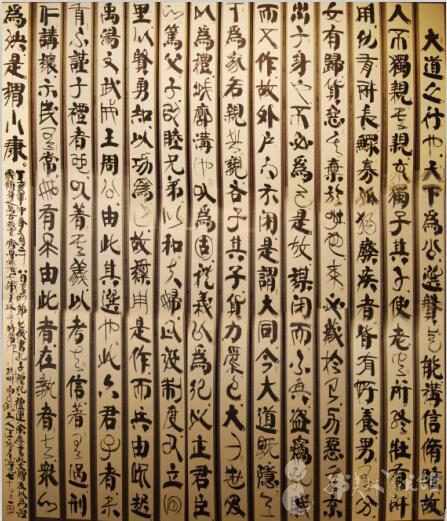 大道之行也天下為公選賢與能講信脩睦故
人不獨親其親不獨子其子使老有所終壯有所
用幼有所長鰥寡孤獨廢疾者皆有所養男有分
女有歸貨惡其棄於地也不必藏於己力惡其不
出于身也不必為己是故謀閉而不興盜竊亂賊
而不作故外户而不閉是謂大同今大道既隱天
下為家各親其親各子其子貨力為己大人世及
以為禮城郭溝池以為固禮義以為紀以正君臣
以篤父子以睦兄弟以和夫婦以設制度以立田
里以賢勇知以功為己故謀用是作而兵由此起
禹湯文武成王周公由此其選也此六君子者未
有不謹于禮者也以著其義以考其信著有過刑
仁講讓示民有常如有不由此者在埶者去衆以
為殃是謂小康